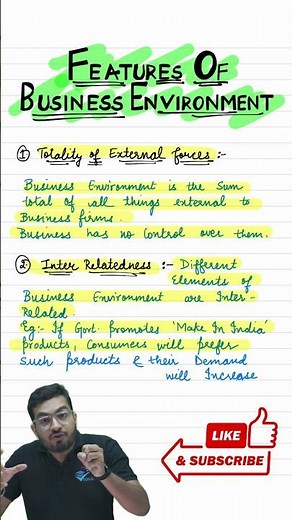 FEATURES OF
BUSINESS ENVIRONMENT
① Totality of External forces :-
Business Environment is the Sum
total of all things external to
Business firms.
Business has no Control over them.
② Inter Relatedness :- Different
Elements of
Business Environment are Inter-
Related.
Eg:- If Govt. promotes 'Make In India'
products, Consumers will prefer
Such products & their Demand
will Increase
LIKE
& SUBSCRIBE